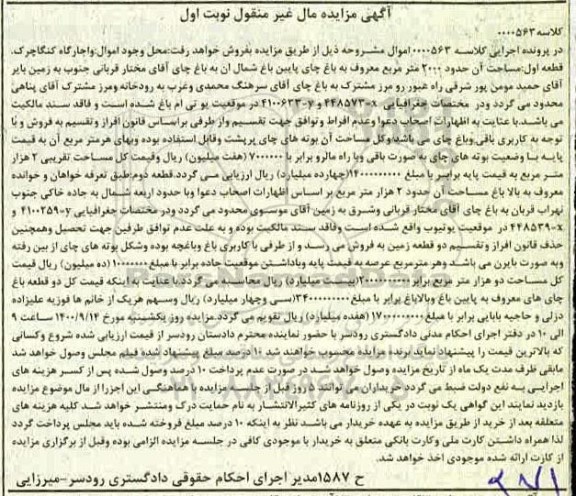 آگهی مزایده مال غیر منقول نوبت اول
کلاسه۰۰۰۰۵۶۳
در پرونده اجرایی کلاسه ۰۰۰۰۵۶۳ اموال مشروحه ذیل از طریق مزایده بفروش خواهد رفت:محل وجود اموال:واجارگاه کنگاچرک.
قطعه اول:مساحت آن حدود ۲۰۰۰ متر مربع معروف به باغ چای پایین باغ شمال ان به باغ چای آقای مختار قربانی جنوب به زمین بایر
آقای حمید مومن پور شرقی راه عبور رو مرز مشترک به باغ چای آقای سرهنگ محمدی وغرب به رودخانه ومرز مشترک آقای پناهی
محدود می گردد ودر مختصات جغرافیایی ۴۴۸۵۷۳-x و ۴۱۰۰۶۳۳-y در موقعیت یو تی ام باغ شده است و فاقد سند مالکیت
می باشد.با عنایت به اظهارات اصحاب دعوا وعدم افراط وتوافق جهت تقسیم واز طرفی براساس قانون افراز وتقسیم به فروش و با
توجه به کاربری باقی وباغ چای می باشد وکل مساحت آن بوته های چای پرپشت وقابل استفاده بوده وبهای هرمتر مربع آن به قیمت
پایه با وضعیت بوته های چای به صورت باقی وبا راه مالرو برابر با ۷۰۰۰۰۰۰ (هفت میلیون) ریال وقیمت کل مساحت تقریبی ۲ هزار
متر مربع به قیمت پایه برابر با مبلغ ۱۴۰۰۰۰۰۰۰۰۰(چهارده میلیارد) ریال ارزیابی می گردد.قطعه دوم:طبق تعرفه خواهان و خوانده
معروف به بالا باغ مساحت آن حدود ۲ هزار متر مربع بر اساس اظهارات اصحاب دعوا وبا حدود اربعه شمال به جاده خاکی جنوب
نهراب قربان به باغ چای آقای مختار قربانی وشرق به زمین آقای موسوی محدود می گردد ودر مختصات جغرافیایی ۴۱۰۰۲۵۹-y و
۴۴۸۵۳۹-x در موقعیت یوتیوب واقع شده است وفاقد سند مالکیت بوده و به علت عدم توافق طرفین جهت تحصیل وهمچنین
حذف قانون افراز وتقسیم دو قطعه زمین به فروش می رسد و از طرفی با کاربری باغ وباغچه بوده وشکل بوته های چای از بین رفته
وبه صورت بایرن می باشد وهر مترمربع عرصه به قیمت پایه وباداشتن موقعیت جاده برابر با مبلغ ۱۰۰۰۰۰۰۰ (ده میلیون) ریال قیمت
کل مساحت دو هزار متر مربع برابر ۲۰۰۰۰۰۰۰۰۰۰ (بیست میلیارد) ریال محاسبه می گردد.با عنایت به اینکه قیمت کل دو قطعه باغ
چای های معروف به پایین باغ وبالاباغ برابر با مبلغ ۳۴۰۰۰۰۰۰۰۰۰(سی وچهار میلیارد) ریال وسهم هریک از خانم ها فوزیه علیزاده
دزلی و حاجیه بابایی برابر با مبلغ ۱۷۰۰۰۰۰۰۰۰۰ (هفده میلیارد) ریال تقویم می گردد.مزایده روز یکشنبه مورخ ۱۴۰۰/۹/۱۴ ساعت ۹
الی ۱۰ در دفتر اجرای احکام مدنی دادگستری رودسر با حضور نماینده محترم دادستان رودسر از قیمت ارزیابی شده شروع وکسانی
که بالاترین قیمت را پیشنهاد نماید برنده مزایده محسوب خواهند شد.۱۰ درصد مبلغ پیشنهاد شده فیلم مجلس وصول خواهد شد
مابقی ظرف مدت یک ماه از تاریخ مزایده وصول خواهد شد در صورت عدم پرداخت ۱۰ درصد وصول شده پس از کسر هزینه های
اجرایی به نفع دولت ضبط می گردد خریداران می توانند ۵ روز قبل از جلسه مزایده با هماهنگی این اجزرا از مال موضوع مزایده
بازدید نمایند این گواهی یک نوبت در یکی از روزنامه های کثیرالانتشار به نام حمایت درک ومنتشر خواهد شد کلیه هزینه های
متعلقه بعد از خرید از طریق مزایده به عهده خریدار می باشد نظر به اینکه ۱۰ درصد مبلغ فروخته شده باید مجلس پرداخت گردد
لذا همراه داشتن کارت ملی وکارت بانکی متعلق به خریدار با موجودی کافی در جلسه مزایده الزامی بوده وقبل از برگزاری مزایده
از کارت ارائه شده موجودی اخذ خواهد شد.
ح ۱۵۸۷مدیر اجرای احکام حقوقی دادگستری رودسر-میرزایی